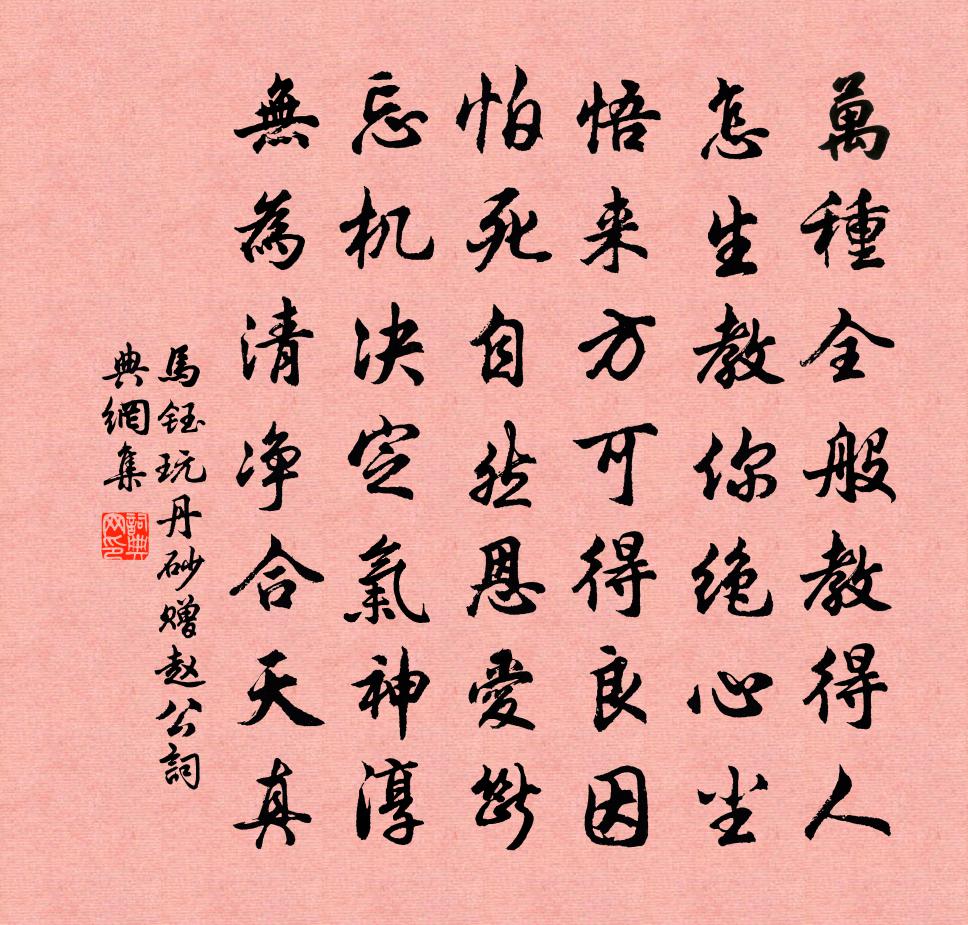 萬種全般教得人
怎生教你绝心尘
悟来方可得良因
怕死自然恩愛断
忘机决定氣神淳
無為清净合天真
馬钰玩丹砂赠赵公詞
典網集
詞典網印